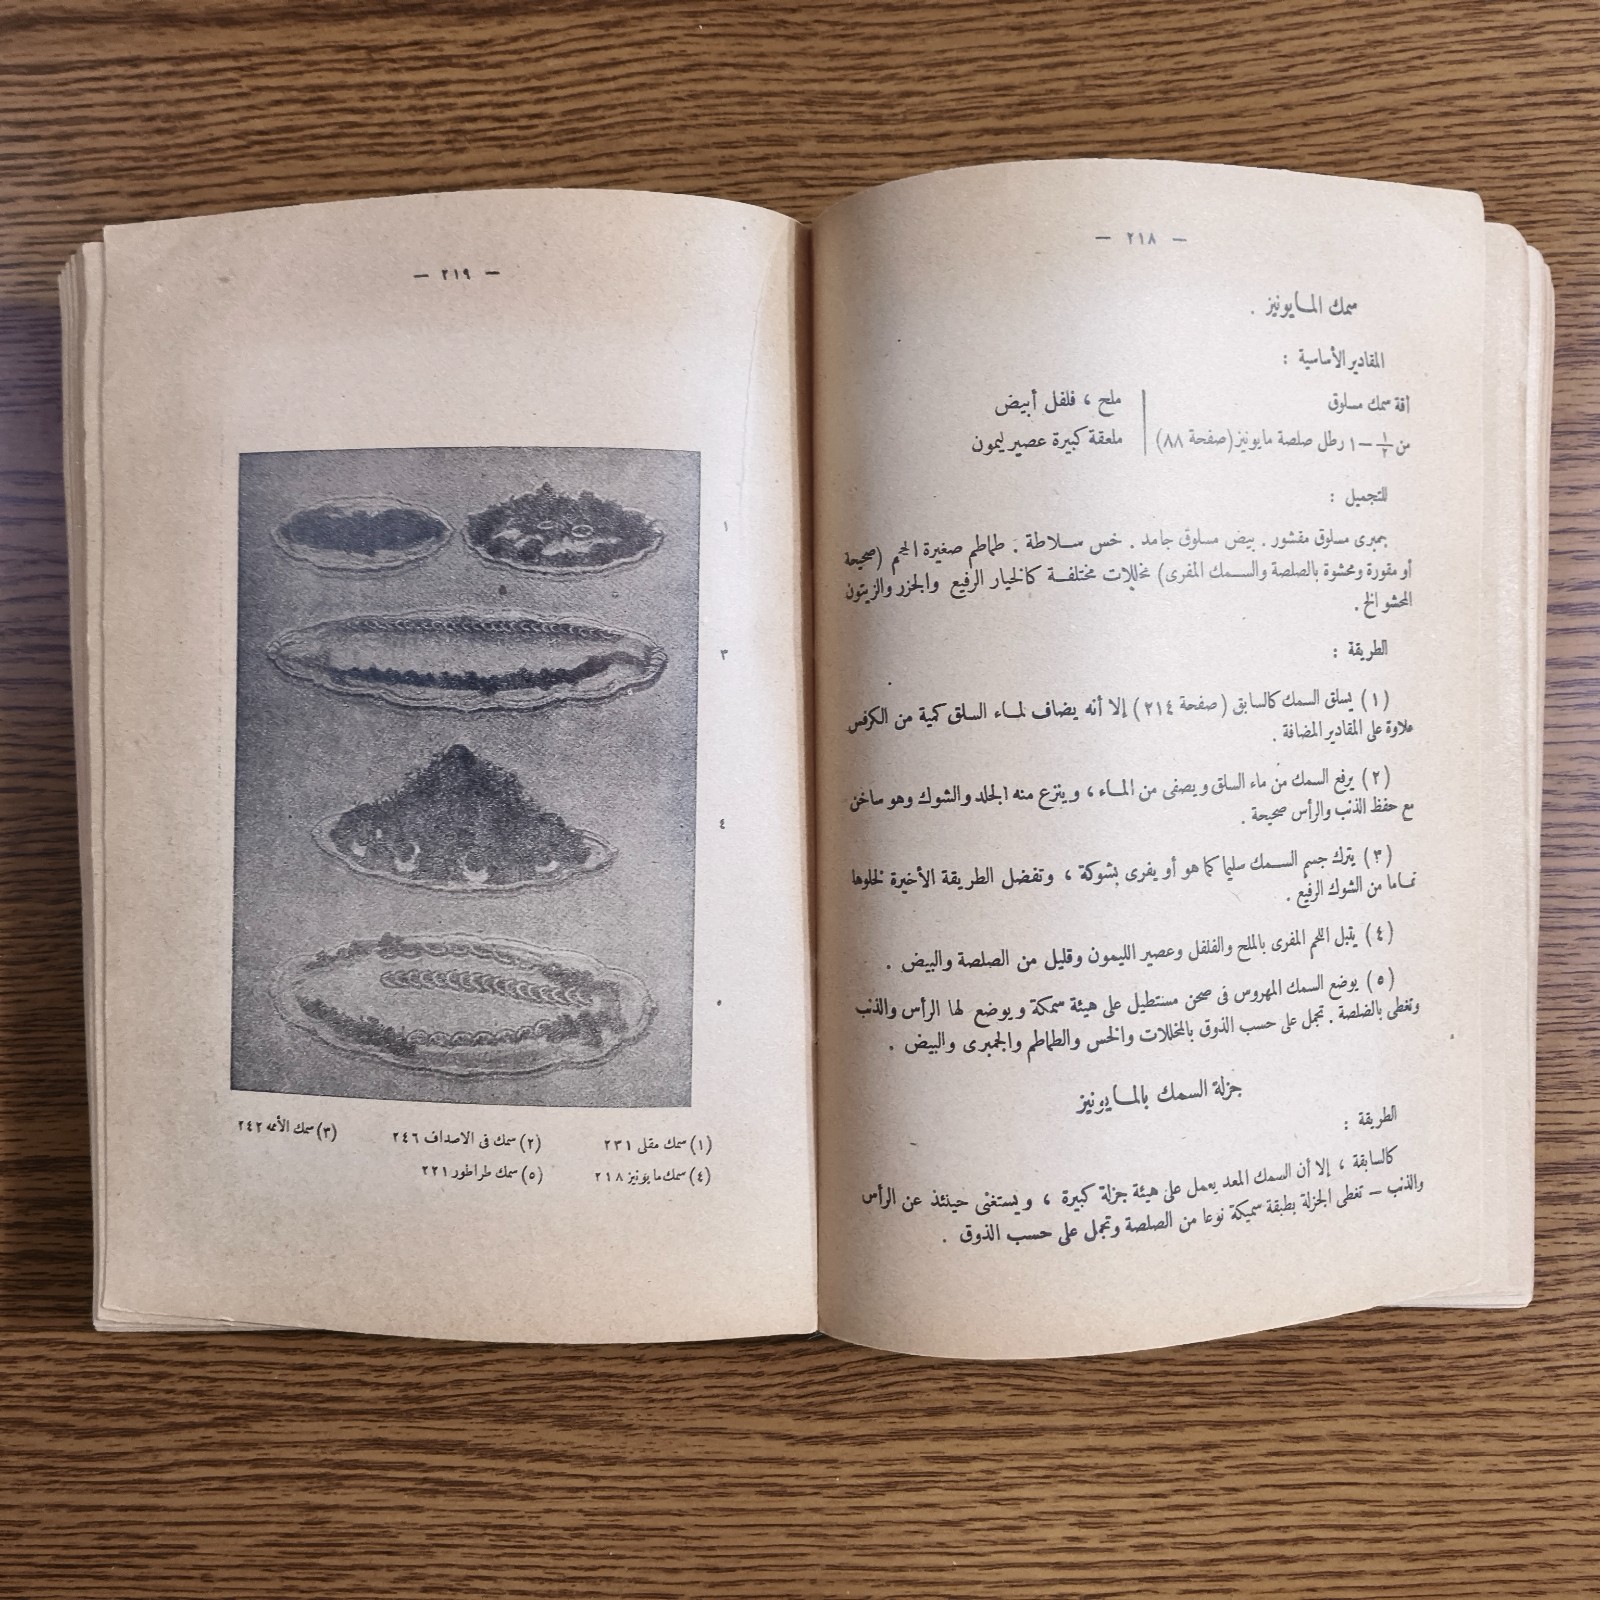 — ٢١٨ —
سمك المايونيز .
المقادير الأساسية :
أقة سمك مسلوق
من ١/٢ – ١ رطل صلصة مايونيز (صفحة ٨٨)
ملح ، فلفل أبيض
ملعقة كبيرة عصير ليمون
للتجميل :
جمبرى مسلوق مقشور . بيض مسلوق جامد . خس سلاطة . طماطم صغيرة الحجم (صحيحة
أو مقورة ومحشوة بالصلصة والسمك المفرى) مخللات مختلفة كالخيار الرفيع والجزر والزيتون
المحشو الخ .
الطريقة :
(١) يسلق السمك كالسابق (صفحة ٢١٤) إلا أنه يضاف لماء السلق كمية من الكرفس
علاوة على المقادير المضافة .
(٢) يرفع السمك من ماء السلق ويصفى من الماء ، وينزع منه الجلد والشوك وهو ساخن
مع حفظ الذنب والرأس صحيحة .
(٣) يترك جسم السمك سليما كما هو أو يفرى بشوكة ، وتفضل الطريقة الأخيرة لخلوها
تماما من الشوك الرفيع .
(٤) يتبل اللحم المفرى بالملح والفلفل وعصير الليمون وقليل من الصلصة والبيض .
(٥) يوضع السمك المهروس فى صحن مستطيل على هيئة سمكة ويوضع لها الرأس والذنب
وتغطى بالصلصة . تجمل على حسب الذوق بالمخللات والخس والطماطم والجمبرى والبيض .
جزلة السمك بالمايونيز
الطريقة :
كالسابقة ، إلا أن السمك المعد يعمل على هيئة جزلة كبيرة ، ويستغنى حينئذ عن الرأس
والذنب – تغطى الجزلة بطبقة سميكة نوعا من الصلصة وتجمل على حسب الذوق .
— ٢١٩ —
١
٣
٤
(١) سمك مقلى ٢٣١ (٢) سمك فى الاصداف ٢٤٦ (٣) سمك الأئمه ٢٤٢
(٤) سمك مايونيز ٢١٨ (٥) سمك طراطور ٢٢١